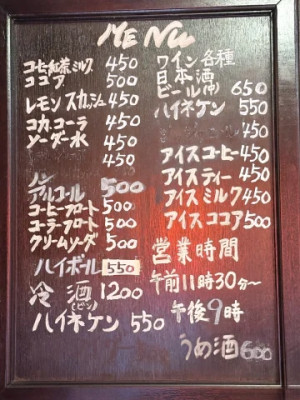 MENU
コーヒー紅茶ミルク 450
ココア 500
レモンスカッシュ 450
コカ・コーラ 450
ソーダー水 450
450
ノン
アルコール 500
コーヒーフロート 500
コーラーフロート 500
クリームソーダ 500
ハイボール 550
冷酒 1200
ハイネケン 550
ワイン各種
日本酒
ビール(中) 650
ハイネケン 550
450
アイスコーヒー 450
アイスティー 450
アイスミルク 450
アイスココア 500
営業時間
午前11時30分〜
午後9時
うめ酒 600